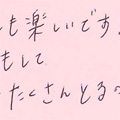 も楽しいです。
もして
たくさんとる